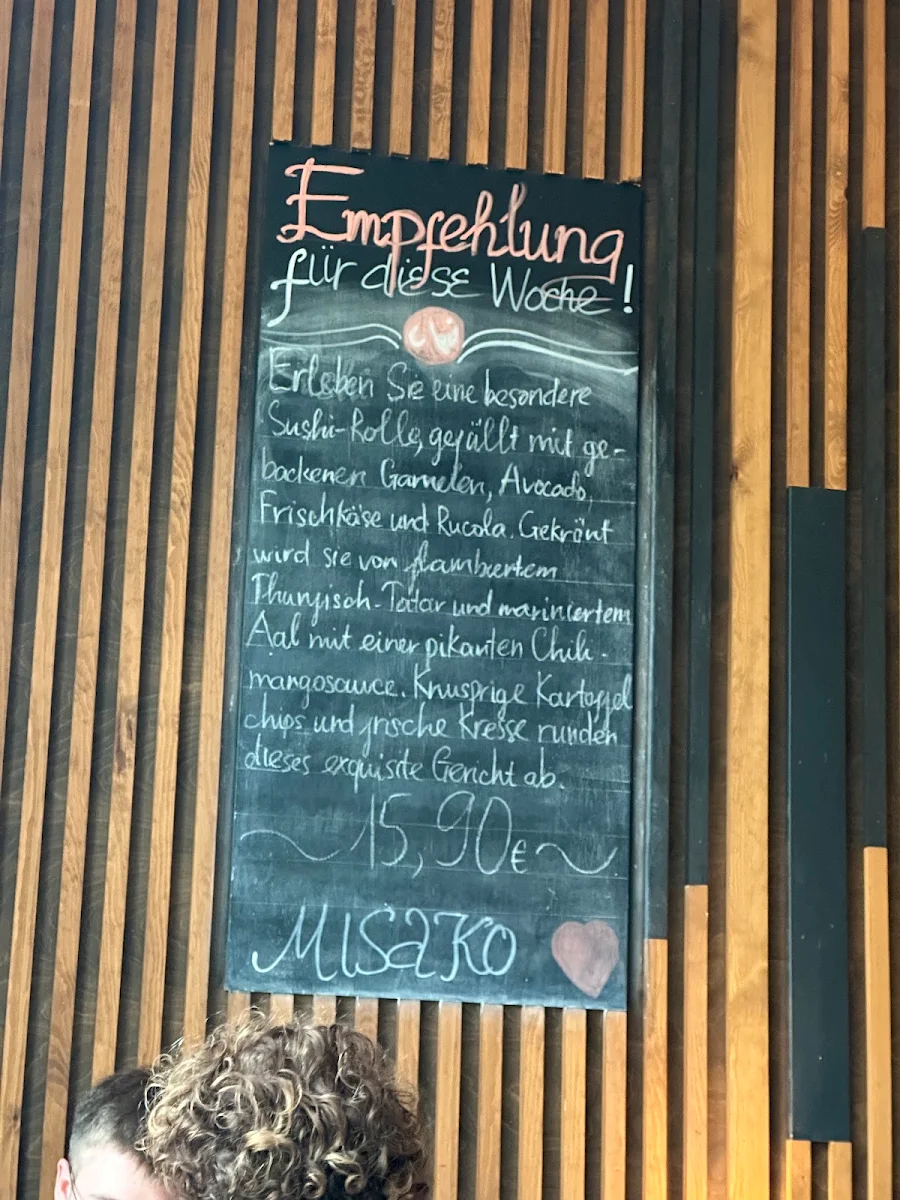 Empfehlung
für diese Woche!
Erleben Sie eine besondere
Sushi-Rolle, gefüllt mit ge-
backenen Garnelen, Avocado,
Frischkäse und Rucola. Gekrönt
wird sie von flambiertem
Thunfisch-Tatar und mariniertem
Aal mit einer pikanten Chili-
mangosauce. Knusprige Kartoffel
chips und frische Kresse runden
dieses exquisite Gericht ab.
~15,90€~
MISAKO